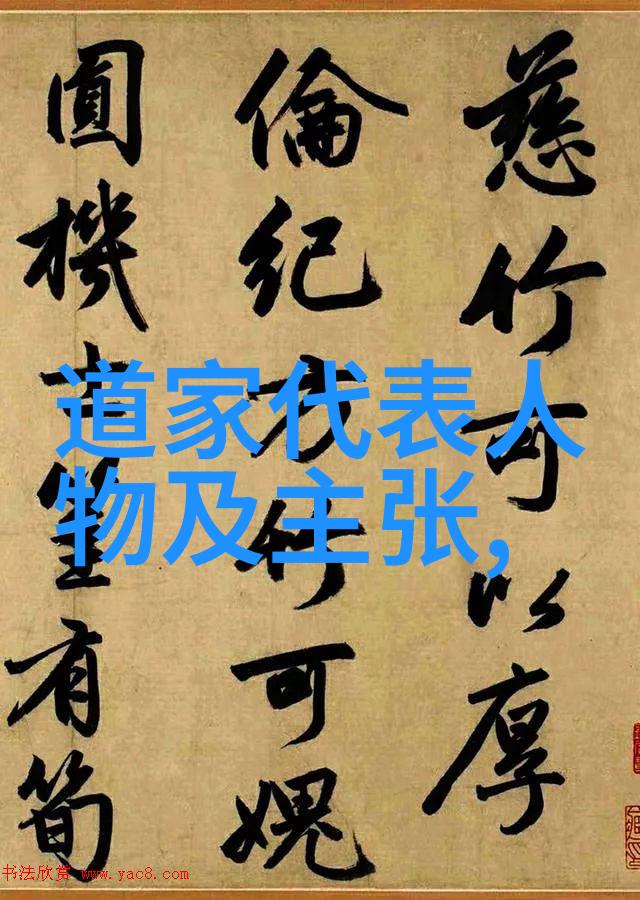 道家代表人
物及主张,
慈竹可以厚
倫紀方竹可媿
圓機士筀有筍
书法欣赏 www.yac8.com